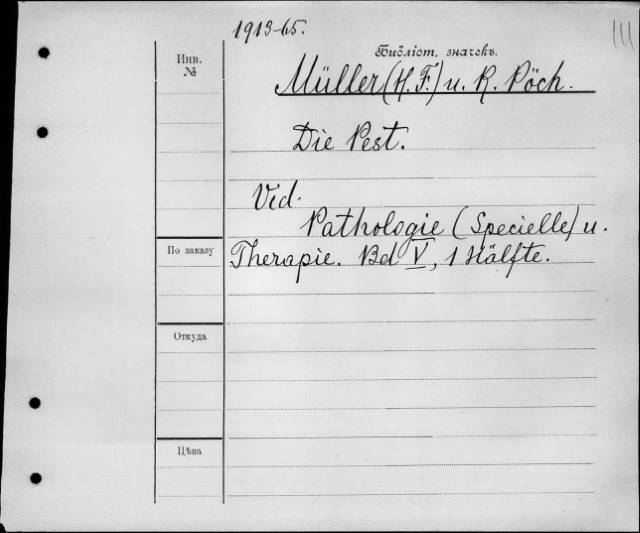 1913-65.
111
Библіот. значекъ.
Инв.
№
Müller (H. F.) u. R. Pöch.
Die Pest.
Vid.
Pathologie (Specielle) u.
По заказу
Therapie. Bd V, 1 Hälfte.
Откуда
Цѣна